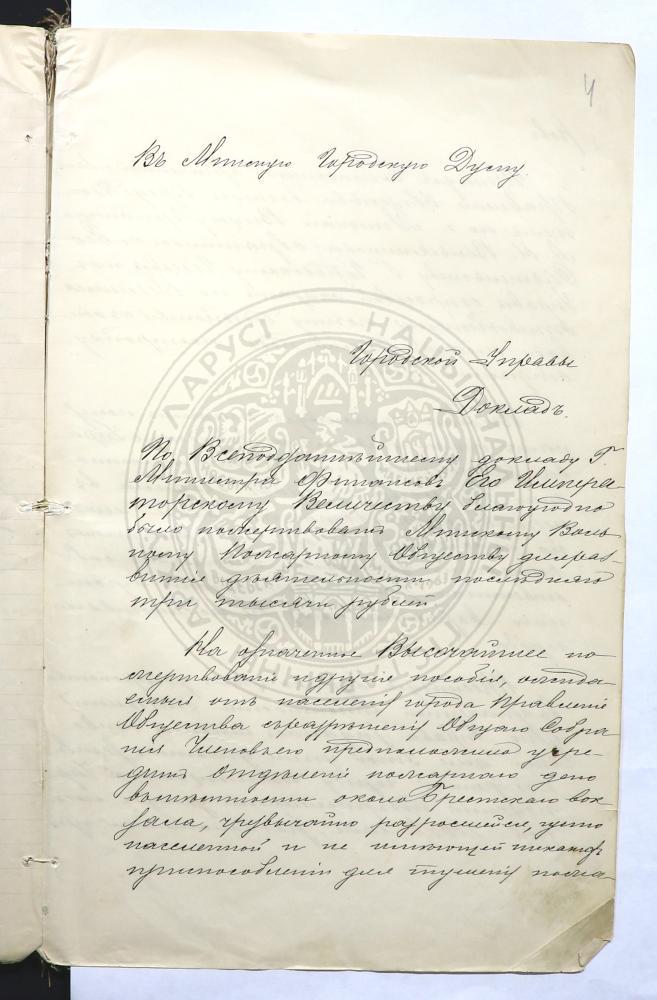 4
Въ Минскую Городскую Думу.
Городской Управы
Докладъ.
По Всеподданнѣйшему докладу Г.
Министра Финансовъ Его Импера-
торскому Величеству благоугодно
было пожертвовать Минскому Воль-
ному Пожарному Обществу для раз-
витія дѣятельности послѣдняго
три тысячи рублей
На означенные Высочайшее по-
жертвованіе и другія пособія, ожида-
емыя отъ населенія города Правленіе
Общества съ разрѣшенія Общаго Собра-
нія Членовъ его предположило учре-
дить Отдѣленіе пожарнаго депо
въ мѣстности около Брестскаго вок-
зала, чрезвычайно разросшейся, густо
населенной и не имѣющей никакихъ
приспособленій для тушенія пожа-
БЕЛАРУСІ НАЦЫЯ